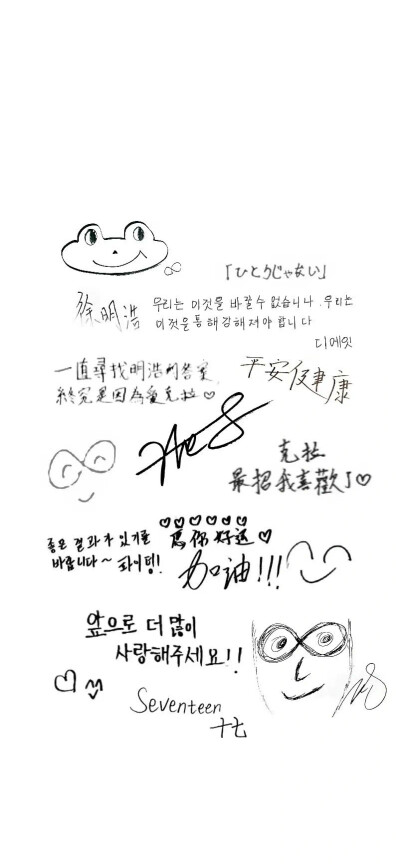 「ひとりじゃない」
徐明浩
우리는 이것을 바꿀 수 없습니다. 우리는
이것을 통해 강해져야 합니다
디에잇
一直尋找明浩的答案
終究是因為愛克拉♡
平安健康
克拉
最招我喜歡了♡
좋은 결과가 있기를
바랍니다~ 화이팅!
為你好運♡
加油!!!
앞으로 더 많이
사랑해주세요!!
Seventeen
十七